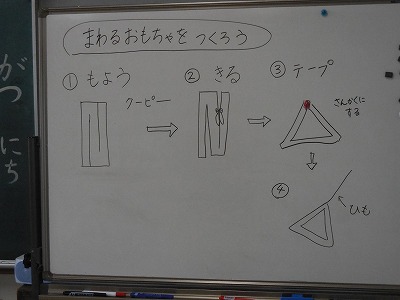 がつ にち
まわるおもちゃをつくろう
① もよう
クーピー
② きる
③ テープ
さんかくに
する
④
ひも